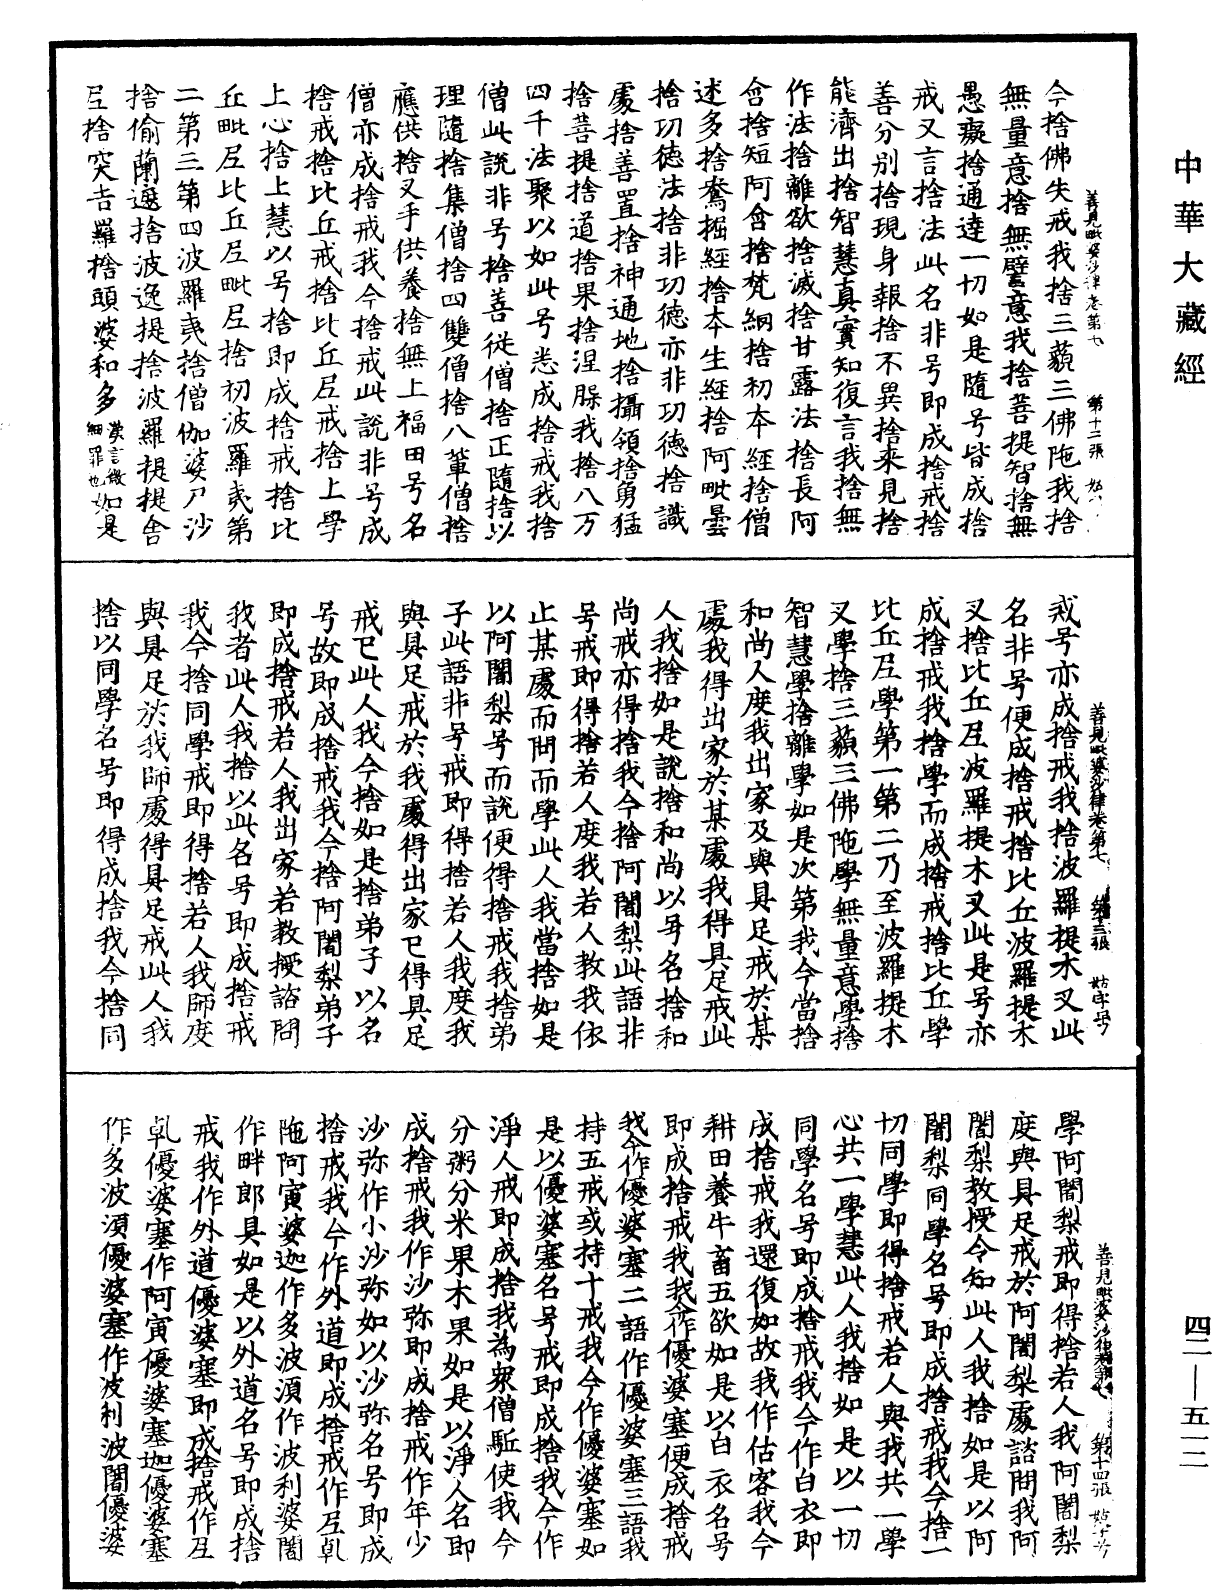 中華大藏經
善見毗婆沙律卷第七 第十二張
今捨佛失戒我捨三藐三佛陁我捨
無量意捨無譬意我捨菩提智捨無
愚癡捨通達一切如是隨号皆成捨
戒又言捨法此名非号即成捨戒捨
善分別捨現身報捨不異捨來見捨
能濟出捨智慧真實知復言我捨無
作法捨離欲捨滅捨甘露法捨長阿
含捨短阿含捨梵網捨初本經捨僧
述多捨鴦掘經捨本生經捨阿毗曇
捨功德法捨非功德亦非功德捨識
處捨善置捨神通地捨攝領捨勇猛
捨菩提捨道捨果捨涅脄我捨八万
四千法聚以如此号悉成捨戒我捨
僧此說非号捨善從僧捨正隨捨以
理隨捨集僧捨四雙僧捨八輩僧捨
應供捨叉手供養捨無上福田号名
僧亦成捨戒我今捨戒此說非号成
捨戒捨比丘戒捨比丘𡰱戒捨上學
上心捨上慧以号捨即成捨戒捨比
丘毗𡰱比丘𡰱毗𡰱捨初波羅夷第
二第三第四波羅夷捨僧伽婆尸沙
捨偷蘭遮捨波逸提捨波羅提提舍
𡰱捨突吉羅捨頭婆和多漢言微細罪也如是
善見毗婆沙律卷第七 第十三張 姑字号
戒号亦成捨戒我捨波羅提木叉此
名非号便成捨戒捨比丘波羅提木
叉捨比丘𡰱波羅提木叉此是号亦
成捨戒我捨學而成捨戒捨比丘學
比丘𡰱學第一第二乃至波羅提木
叉學捨三藐三佛陁學無量意學捨
智慧學捨離學如是次第我今當捨
和尚人度我出家及與具足戒於某
處我得出家於某處我得具足戒此
人我捨如是說捨和尚以号名捨和
尚戒亦得捨我今捨阿闍梨此語非
号戒即得捨若人度我若人教我依
止某處而問而學此人我當捨如是
以阿闍梨号而說便得捨戒我捨弟
子此語非号戒即得捨若人我度我
與具足戒於我處得出家已得具足
戒已此人我今捨如是捨弟子以名
号故即成捨戒我今捨阿闍梨弟子
即成捨戒若人我出家若教授諮問
我者此人我捨以此名号即成捨戒
我今捨同學戒即得捨若人我師度
與具足於我師處得具足戒此人我
捨以同學名号即得成捨我今捨同
善見毗婆沙律卷第七 第十四張 姑字号
學阿闍梨戒即得捨若人我阿闍梨
度與具足戒於阿闍梨處諮問我阿
闍梨教授令知此人我捨如是以阿
闍梨同學名号即成捨戒我今捨一
切同學即得捨戒若人與我共一學
心共一學慧此人我捨如是以一切
同學名号即成捨戒我今作白衣即
成捨戒我還復如故我作估客我今
耕田養牛畜五欲如是以白衣名号
即成捨戒我今作優婆塞便成捨戒
我今作優婆塞二語作優婆塞三語我
持五戒或持十戒我今作優婆塞如
是以優婆塞名号戒即成捨我今作
淨人戒即成捨我為眾僧駈使我今
分粥分米果木果如是以淨人名即
成捨戒我作沙弥即成捨戒作年少
沙弥作小沙弥如以沙弥名号即成
捨戒我今作外道即成捨戒作𡰱乹
陁阿寅婆迦作多波湏作波利婆闍
作畔郎具如是以外道名号即成捨
戒我作外道優婆塞即成捨戒作𡰱
乹優婆塞作阿寅優婆塞迦優婆塞
作多波湏優婆塞作波利波闍優婆
四二—五一二